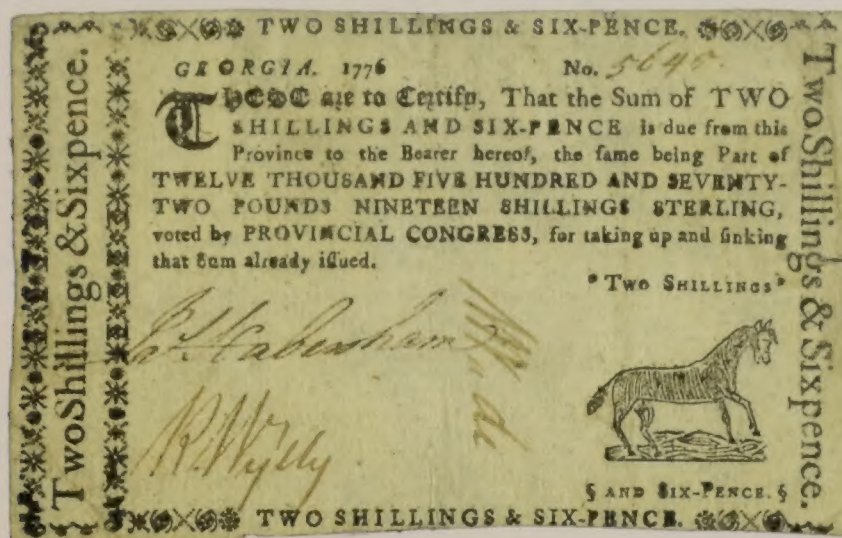 TWO SHILLINGS & SIX-PENCE.
Two Shillings & Sixpence.
GEORGIA. 1776 No. 5645
THESE are to Certify, That the Sum of TWO
SHILLINGS AND SIX-PENCE is due from this
Province to the Bearer hereof, the same being Part of
TWELVE THOUSAND FIVE HUNDRED AND SEVENTY-
TWO POUNDS NINETEEN SHILLINGS STERLING,
voted by PROVINCIAL CONGRESS, for taking up and sinking
that Sum already issued.
"TWO SHILLINGS"
Jas. Habersham
R Wylly
§ AND SIX-PENCE. §
Two Shillings & Sixpence.
TWO SHILLINGS & SIX-PENCE.